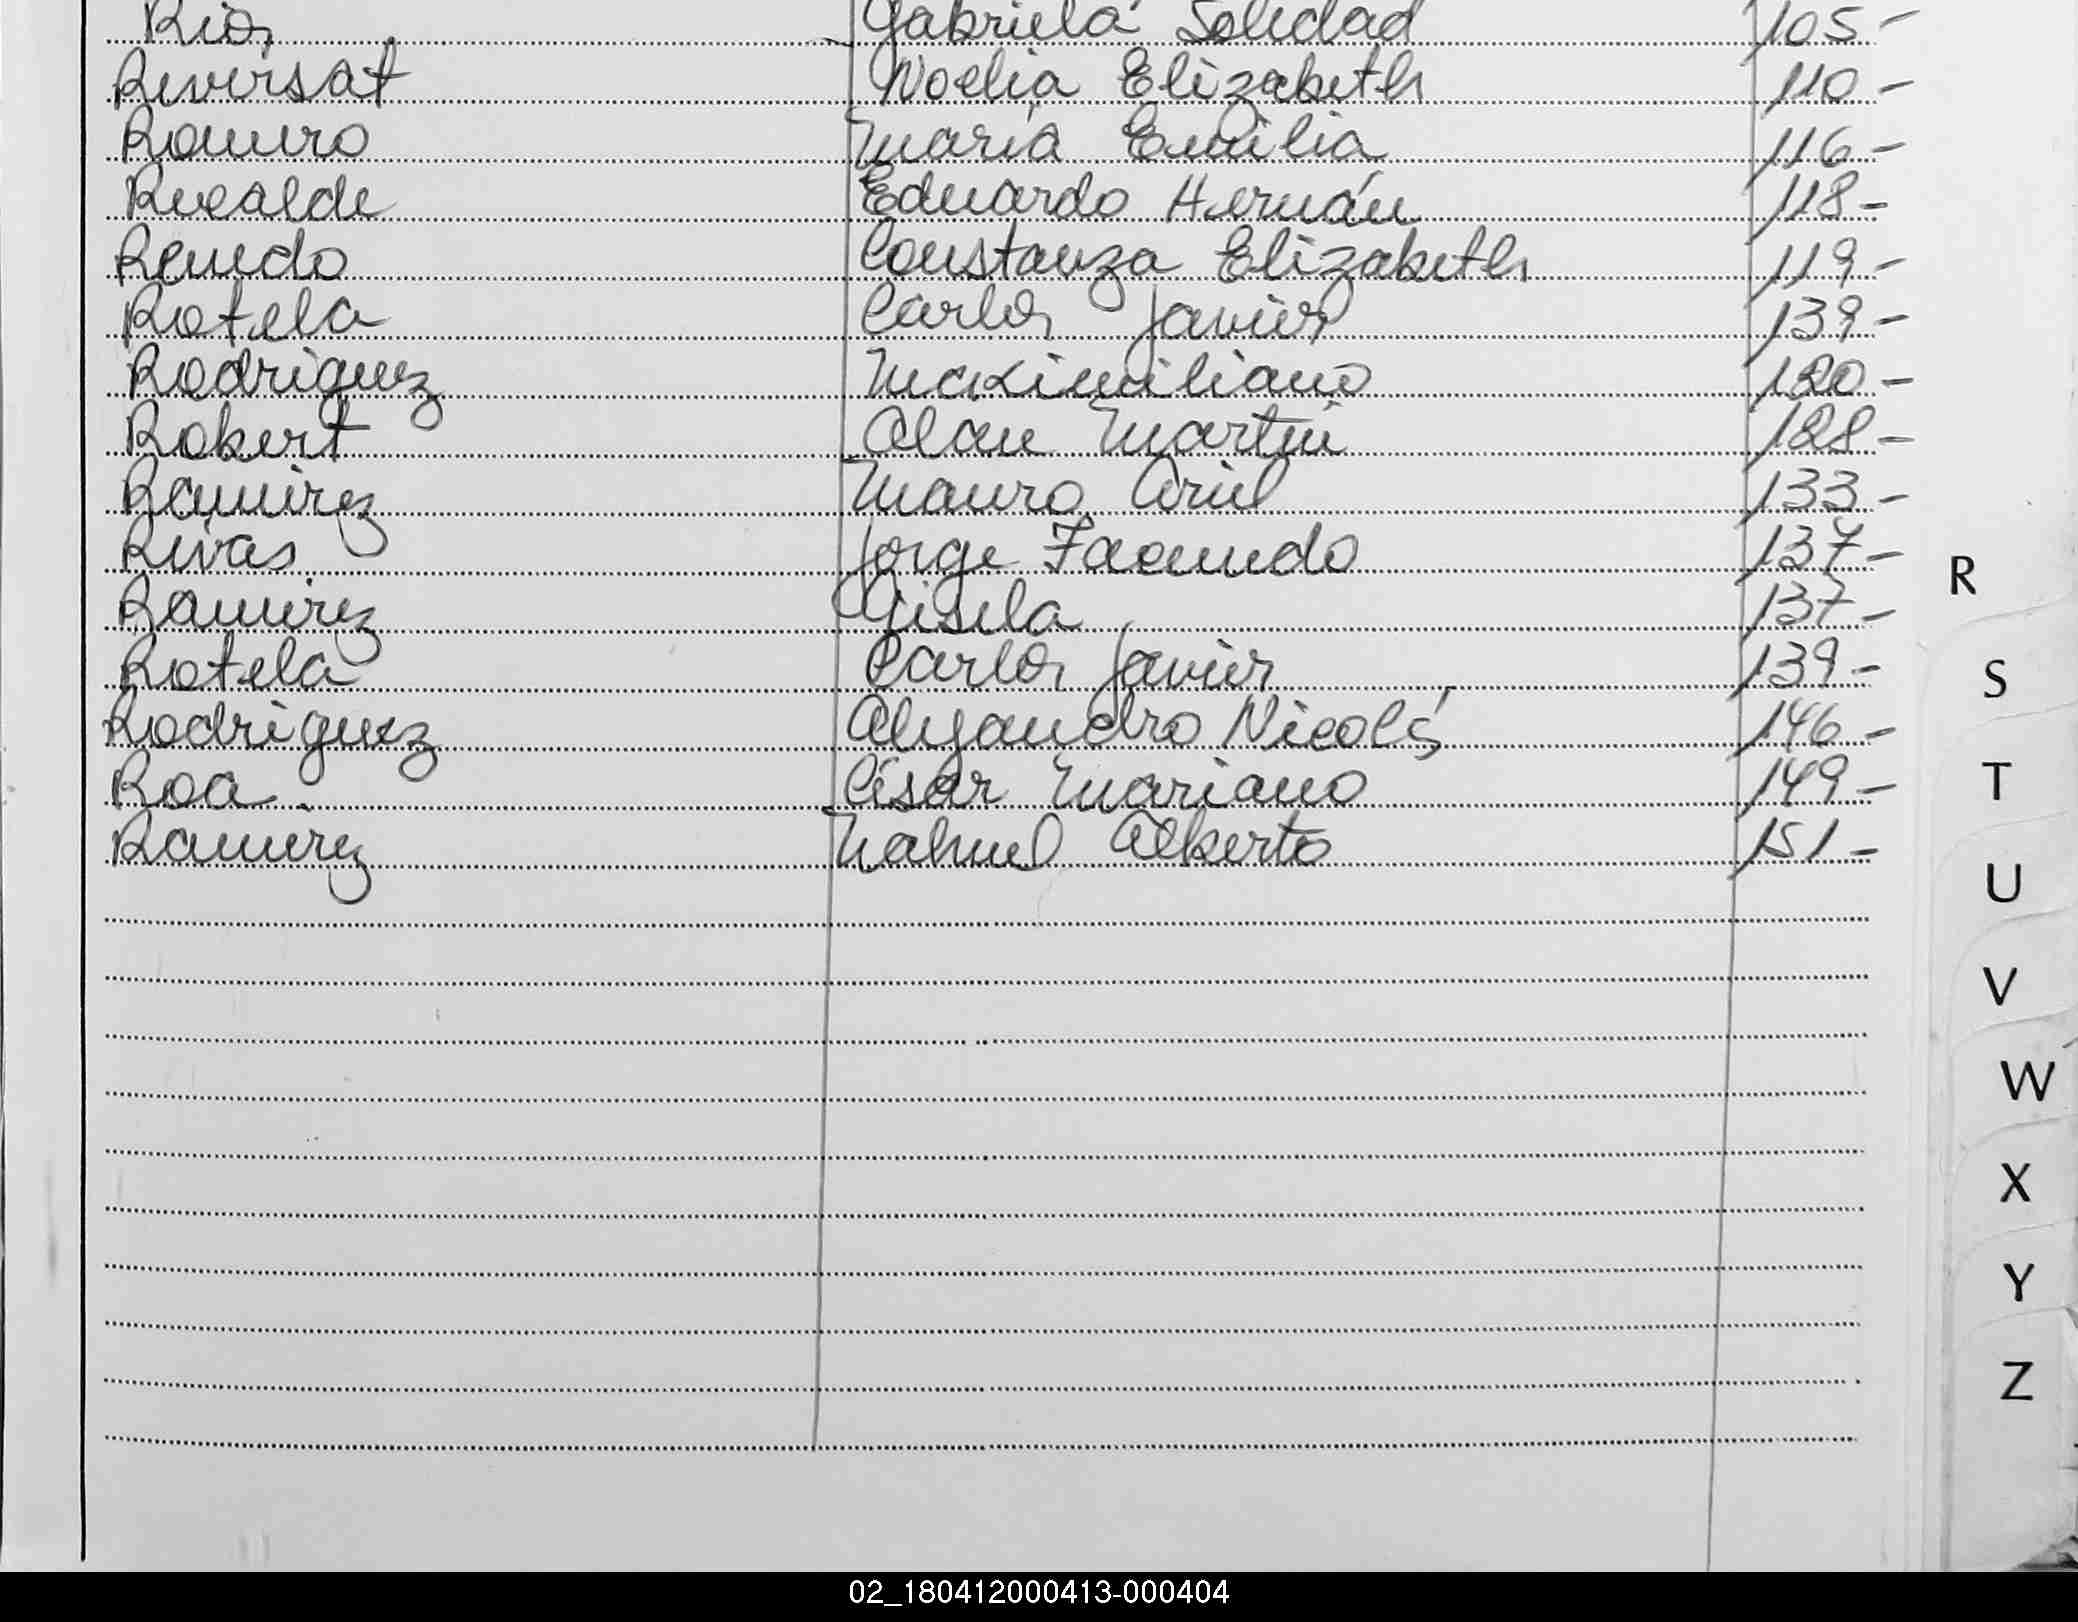 Rios Gabriela Soledad 105-
Reversat Noelia Elizabeth 110-
Romero María Emilia 116-
Recalde Eduardo Hernán 118-
Rendo Constanza Elizabeth 119-
Rotela Carlos Javier 139-
Rodriguez Maximiliano 120-
Robert Alan Martín 128-
Ramirez Mauro Ariel 133-
Rivas Jorge Facundo 137-
R
Ramirez Gisela 137-
Rotela Carlos Javier 139-
S
Rodriguez Alejandro Nicolás 146-
Roa César Mariano 149-
T
Ramirez Nahuel Alberto 151-
U
V
W
X
Y
Z
02_180412000413-000404